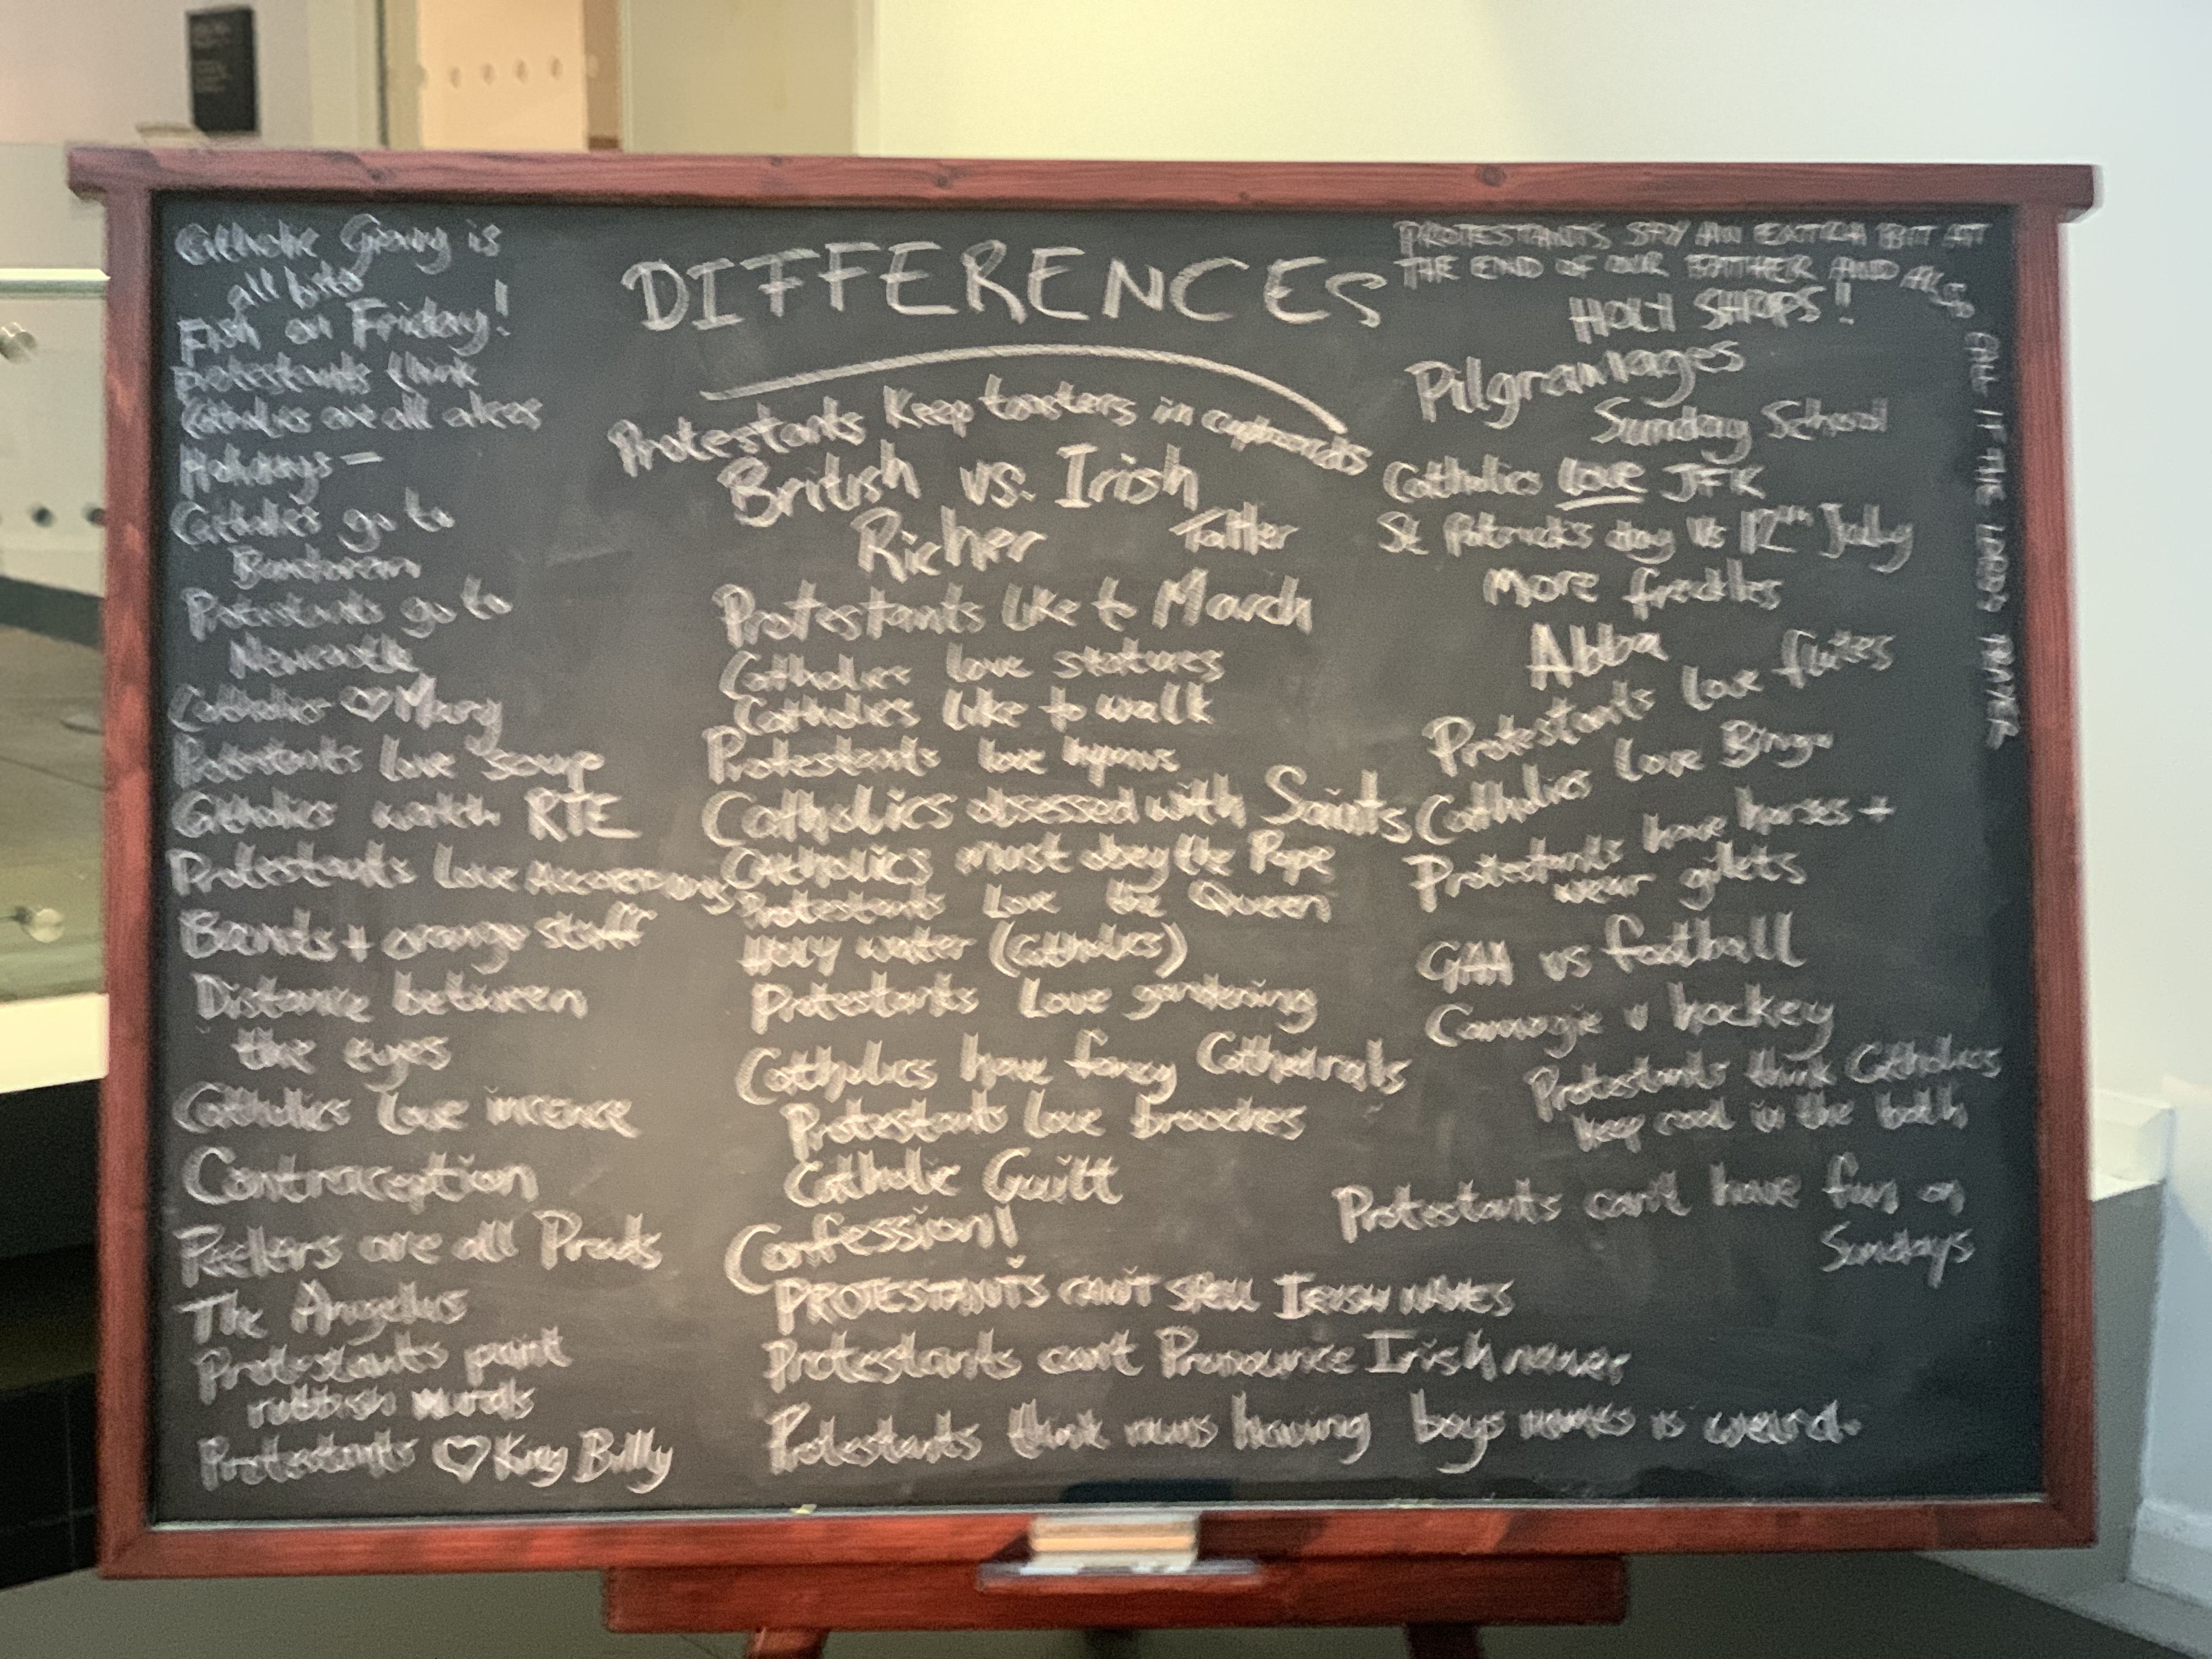 DIFFERENCES
Catholic Gravy is
all bisto
Fish on Friday!
protestants think
Catholics are all alcos
Holidays -
Catholics go to
Bundoran
Protestants go to
Newcastle
Catholics ♡ Mary
Protestants love soup
Catholics watch RTE
Protestants love
Bands + orange stuff
Distance between
the eyes
Catholics love incence
Contraception
Peelers are all Prods
The Angelus
Protestants paint
rubbish murals
Protestants ♡ King Billy
Protestants Keep toasters in cupboards
British vs. Irish
Richer Taller
Protestants like to March
Catholics love statues
Catholics like to walk
Protestants love hymns
Catholics obsessed with Saints
Catholics must obey the Pope
Protestants Love the Queen
Holy water (Catholics)
Protestants Love gardening
Catholics have fancy Cathedrals
Protestants love brooches
Catholic Guilt
Confession!
PROTESTANTS CAN'T SPELL IRISH NAMES
Protestants can't Pronounce Irish names
Protestants think nuns having boys names is weird.
PROTESTANTS SAY AN EXTRA BIT AT
THE END OF OUR FATHER AND ALSO
CALL IT THE LORDS PRAYER
HOLY SHOPS!
Pilgramages
Sunday School
Catholics love JFK
St Patrick's day Vs 12th July
More freckles
Abba
Protestants love flutes
Catholics love Bingo
Protestants have horses +
wear gilets
GAA vs football
Camogie v hockey
Protestants think Catholics
keep coal in the bath
Protestants can't have fun on
Sundays